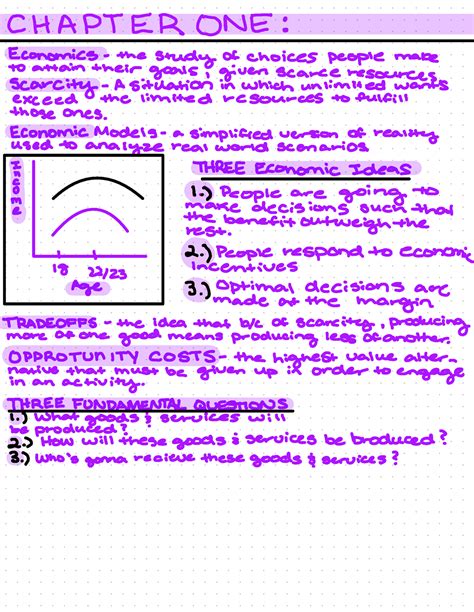 CHAPTER ONE:
Economics - the study of choices people make
to attain their goals, given scarce resources
Scarcity - A situation in which unlimited wants
exceed the limited resources to fulfill
those ones.
Economic Models - a simplified version of reality
used to analyze real world scenarios
THREE Economic Ideas
1.) People are going to
make decisions such that
the benefit outweigh the
rest.
2.) People respond to economic
incentives
3.) Optimal decisions are
made at the margin
18 22/23
Age
TRADEOFFS - the idea that b/c of scarcity, producing
more of one good means producing less of another.
OPPROTUNITY COSTS - the highest value alter-
native that must be given up in order to engage
in an activity.
THREE FUNDAMENTAL QUESTIONS
1.) What goods & services will
be produced?
2.) How will these goods & services be produced?
3.) Who's gonna recieve these goods & services?